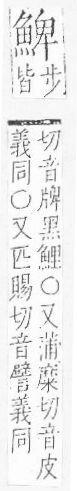 鯡
步
皆
切音牌黑鯉〇又蒲糜切音皮
義同〇又匹賜切音譬義同